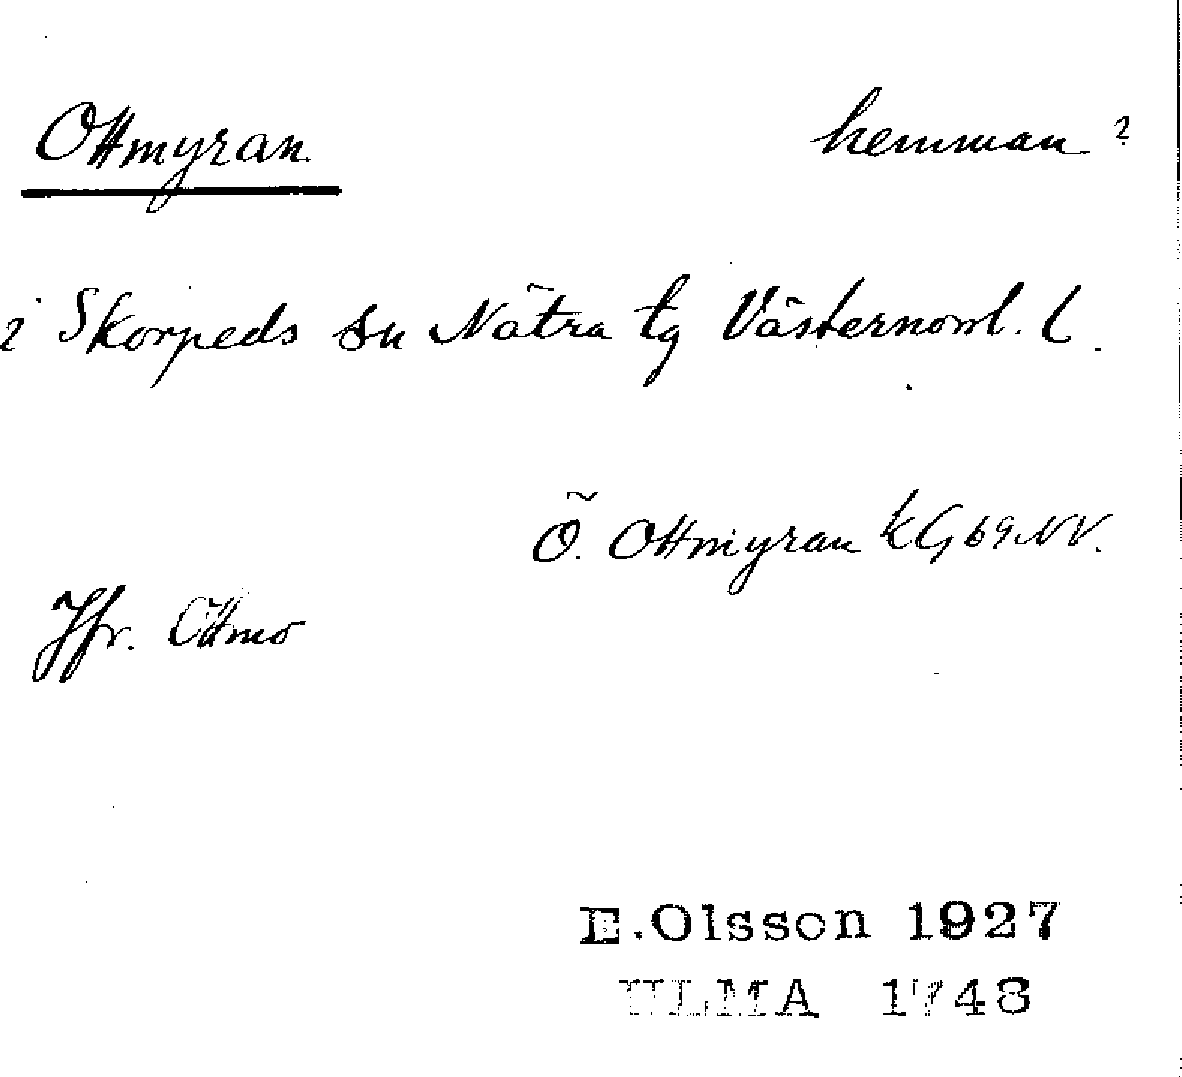 Ottmyran hemman ?
i Skorpeds sn Nätra tg Västernorrl. l.
Ö. Ottmyran kG 69 NV.
Jfr. Ottmo
E.Olsson 1927
ULMA 1748